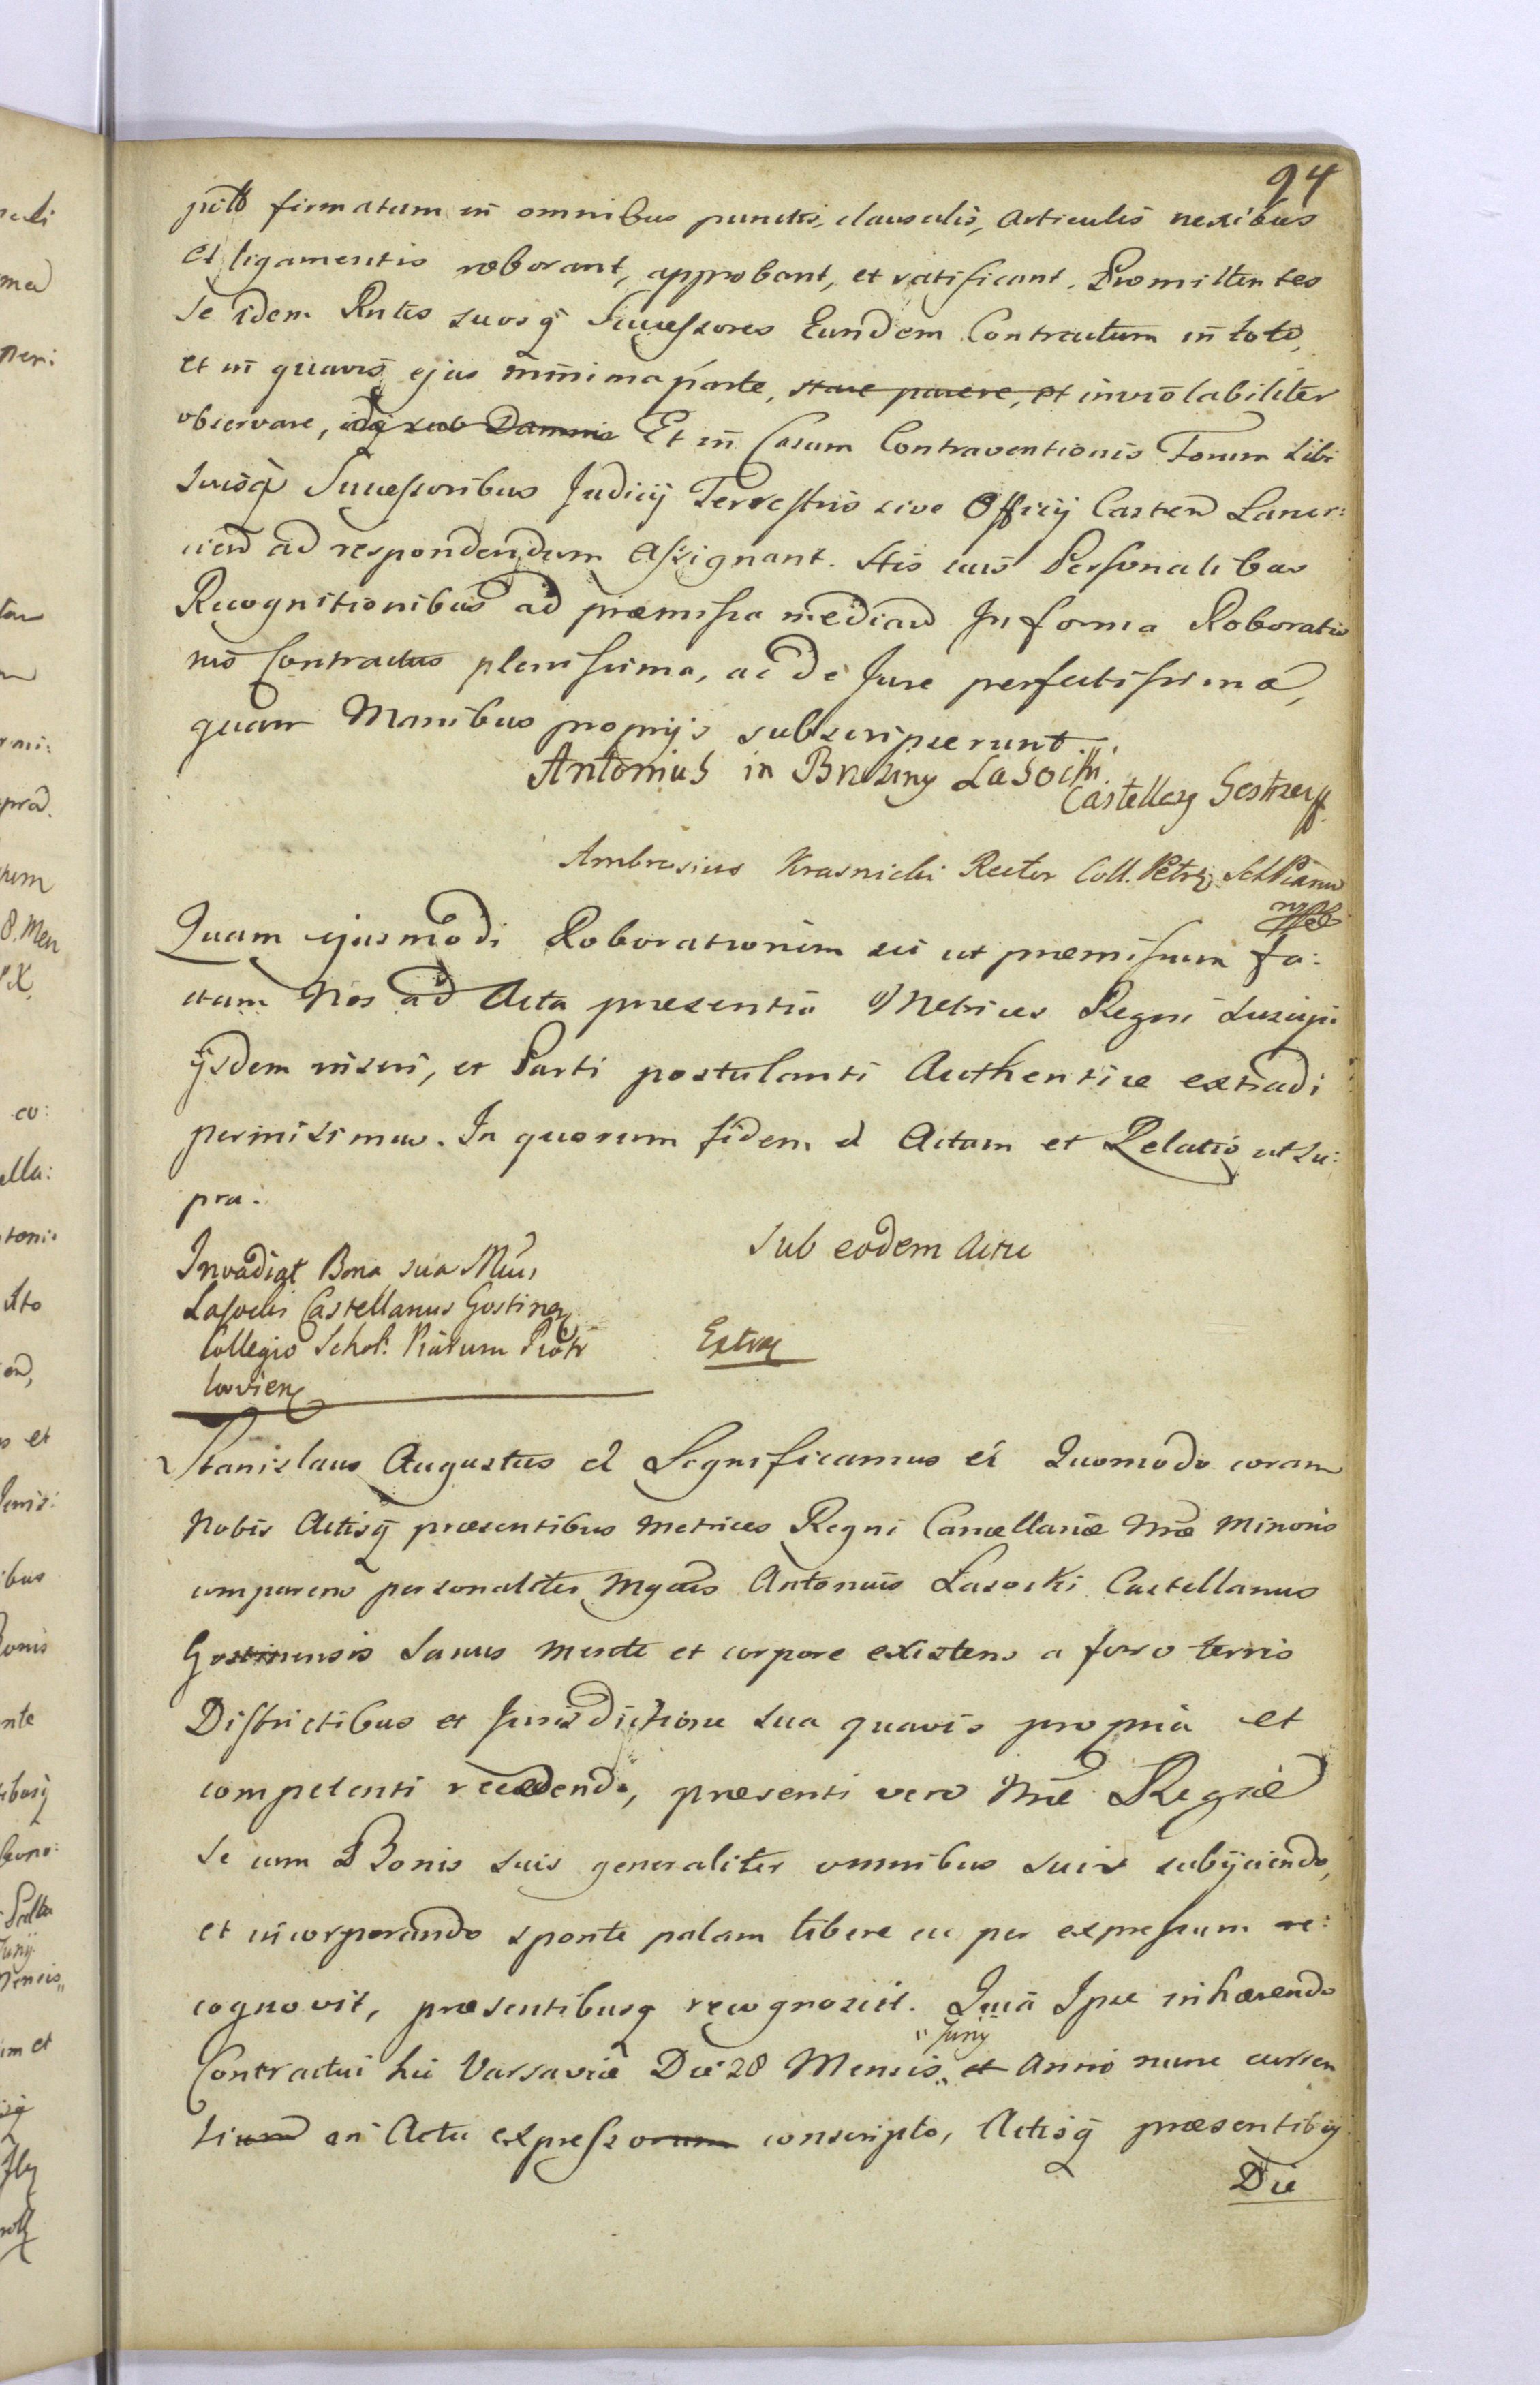 94
firmatum in omnibus punctis, clausulis, articulis nexibus
et ligamentis roborant, approbant, et ratificant. Promittentes
Se idem Rntes suosq Successores Eundem Contractum in toto,
et in quavis ejus minima parte, stare parere, et inviolabiliter
observare, idq sub Damnis Et in Casum Contraventionis Forum sibi
suisq Successoribus Judicij Terrestris sive Officij Castren Lanci:
cien ad respondendum assignant. His suis Personalibus
Recognitionibus ad praemissa median In forma Roboratio
nis Contractus plenissima, ac de Jure perfectissima,
quam Manibus proprijs subscripserunt.
Antonius in Brzeziny Lasocki
Castellan Gostinen
Ambrosius Krasnicki Rector Coll. Petric Schl Piarum
mpp
Quam ejusmodi Roborationem sic ut praemissum fa:
ctam Nos ad Acta praesentia Metrices Regni suscipi
ijsdem inseri, et Parti postulanti Authentice extradi
permisimus. In quorum fidem et Actum et Relatio ut su:
pra.
Sub eodem Actu
Invadiat Bona sua Mcus
Lasocki Castellanus Gostinen
Collegio Schol. Piarum Piotr
kovien
Extra
Stanislaus Augustus et Significamus et Quomodo coram
Nobis Actisq praesentibus Metrices Regni Cancellariae Nrae Minoris
comparens personaliter Mgcus Antonius Lasocki Castellanus
Gostinensis Sanus mente et corpore existens a foro terris
Districtibus et Jurisdictione sua quavis propria et
competenti recedendo, praesenti vero Nrae Regiae
Se cum Bonis suis generaliter omnibus suis subijciendo,
et incorporando sponte palam libere ac per expressum re:
cognovit, praesentibusq recognoscit. Quia Ipse inhaerendo
"Junij"
Contractui hic Varsaviae Die 28 Mensis,, et Anno nunc curren
tium in Actu expresso rum conscripto, Actisq praesentibq
Die